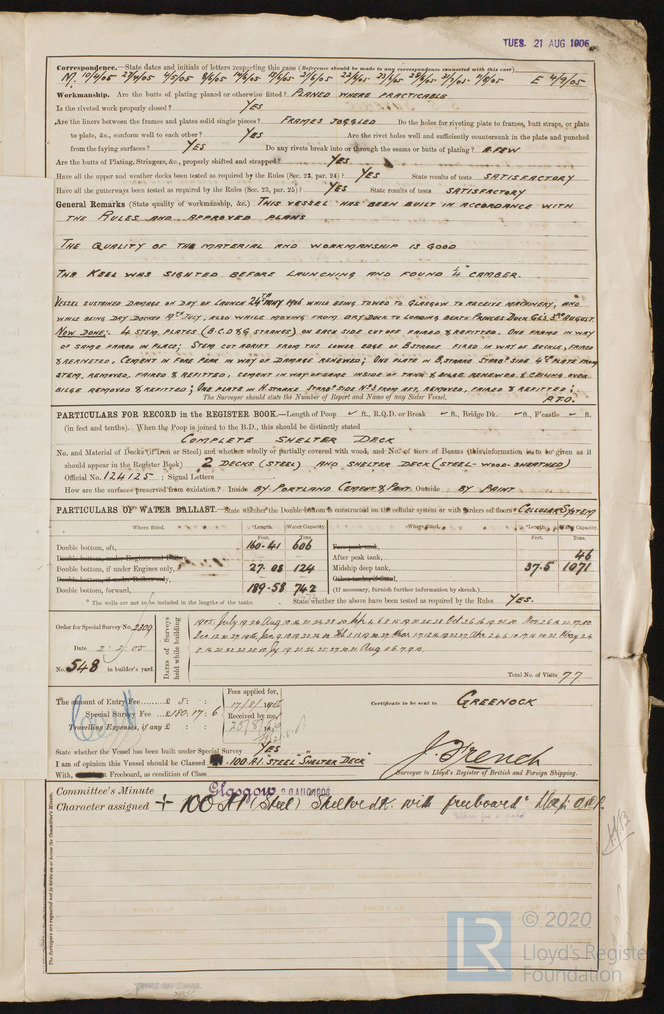 TUES. 21 AUG 1906
Correspondence.—State dates and initials of letters respecting this case (Reference should be made to any correspondence connected with this case)
M. 10/4/05 27/4/05 4/5/05
E 4/9/05
Workmanship. Are the butts of plating planed or otherwise fitted? PLANED WHERE PRACTICABLE
Is the riveted work properly closed? YES
Are the liners between the frames and plates solid single pieces? FRAMES JOGGLED Do the holes for riveting plate to frames, butt straps, or plate
to plate, &c., conform well to each other? YES Are the rivet holes well and sufficiently countersunk in the plate and punched
from the faying surfaces? YES Do any rivets break into or through the seams or butts of plating? A FEW
Are the butts of Plating, Stringers, &c., properly shifted and strapped? YES
Have all the upper and weather decks been tested as required by the Rules (Sec. 23, par. 24)? YES State results of tests SATISFACTORY
Have all the gutterways been tested as required by the Rules (Sec. 23, par. 25)? YES State results of tests SATISFACTORY
General Remarks (State quality of workmanship, &c.) THIS VESSEL HAS BEEN BUILT IN ACCORDANCE WITH
THE RULES AND APPROVED PLANS
THE QUALITY OF THE MATERIAL AND WORKMANSHIP IS GOOD
THE KEEL WAS SIGHTED BEFORE LAUNCHING AND FOUND 1/4" CAMBER.
VESSEL SUSTAINED DAMAGE ON DAY OF LAUNCH 24TH MAY 1906 WHILE BEING TOWED TO GLASGOW TO RECEIVE MACHINERY, AND
WHILE BEING DRY DOCKED TH JULY, ALSO WHILE MOVING FROM DRY DOCK TO LOADING BERTH PRINCES DOCK 3RD AUGUST.
NOW DONE:- 4 STEM PLATES (B.C.D & G STRAKES) ON EACH SIDE CUT OFF FAIRED & REFITTED. ONE FRAME IN WAY
OF SAME FAIRED IN PLACE; STEM CUT ADRIFT FROM THE LOWER EDGE OF B STRAKE FIRED IN WAY OF BREAK, FAIRED
& RERIVETED, CEMENT IN FORE PEAK IN WAY OF DAMAGE RENEWED; ONE PLATE IN B STRAKE STARBD SIDE 4TH PLATE FROM
STEM, REMOVED, FAIRED & REFITTED, CEMENT IN WAY OF SAME INSIDE OF TANK & BILGE RENEWED & CEILING OVER
BILGE REMOVED & REFITTED; ONE PLATE IN H STRAKE STARBD SIDE No 3 FROM AFT, REMOVED, FAIRED & REFITTED;
The Surveyor should state the Number of Report and Name of any Sister Vessel. P.T.O.
PARTICULARS FOR RECORD in the REGISTER BOOK.—Length of Poop ft., R.Q.D. or Break ft., Bridge Dk. ft., F'castle ft.
(in feet and tenths). When the Poop is joined to the B.D., this should be distinctly stated
COMPLETE SHELTER DECK
No. and Material of Decks (if Iron or Steel) and whether wholly or partially covered with wood, and No. of tiers of Beams (this information is to be given as it
should appear in the Register Book) 2 DECKS (STEEL) AND SHELTER DECK (STEEL-WOOD-SHEATHED)
Official No. 124125; Signal Letters
How are the surfaces preserved from oxidation? Inside BY PORTLAND CEMENT & PAINT Outside BY PAINT
PARTICULARS OF WATER BALLAST.—State whether the Double bottom is constructed on the cellular system or with girders on floors CELLULAR SYSTEM
Where fitted. Length. Water Capacity. Where fitted. Length. Water Capacity.
Feet. Tons. Feet. Tons.
Double bottom, aft, 160·41 606 Fore peak tank,
Double bottom, under Engines and Boilers, After peak tank, 46
Double bottom, if under Engines only, 27·08 124 Midship deep tank, 37·5 1071
Double bottom, if under Boilers only, Other tanks, if fitted,
Double bottom, forward, 189·58 742 (If necessary, furnish further information by sketch.)
* The wells are not to be included in the lengths of the tanks. State whether the above have been tested as required by the Rules YES.
Order for Special Survey No. 2209
Date 2/2/05
No. 548 in builder's yard.
DATES of Surveys held while building
1905 July 19 24 Aug
Total No. of Visits 77
The amount of Entry Fee £ 5 : :
Special Survey Fee £180 : 17 : 6
Travelling Expenses, if any £ : :
Fees applied for,
17/8/1906
Received by me,
Certificate to be sent to GREENOCK
State whether the Vessel has been built under Special Survey YES
I am of opinion this Vessel should be Classed 100 A1. "STEEL" "SHELTER DECK"
With, Freeboard, as condition of Class
J. French
Surveyor to Lloyd's Register of British and Foreign Shipping.
Committee's Minute Glasgow 20 AUG 1906
Character assigned + 100 A1 (Steel) Shelter dk. with freeboard
The Surveyors are requested not to write on or below the Committee's Minute.
LR © 2020
Lloyd's Register
Foundation